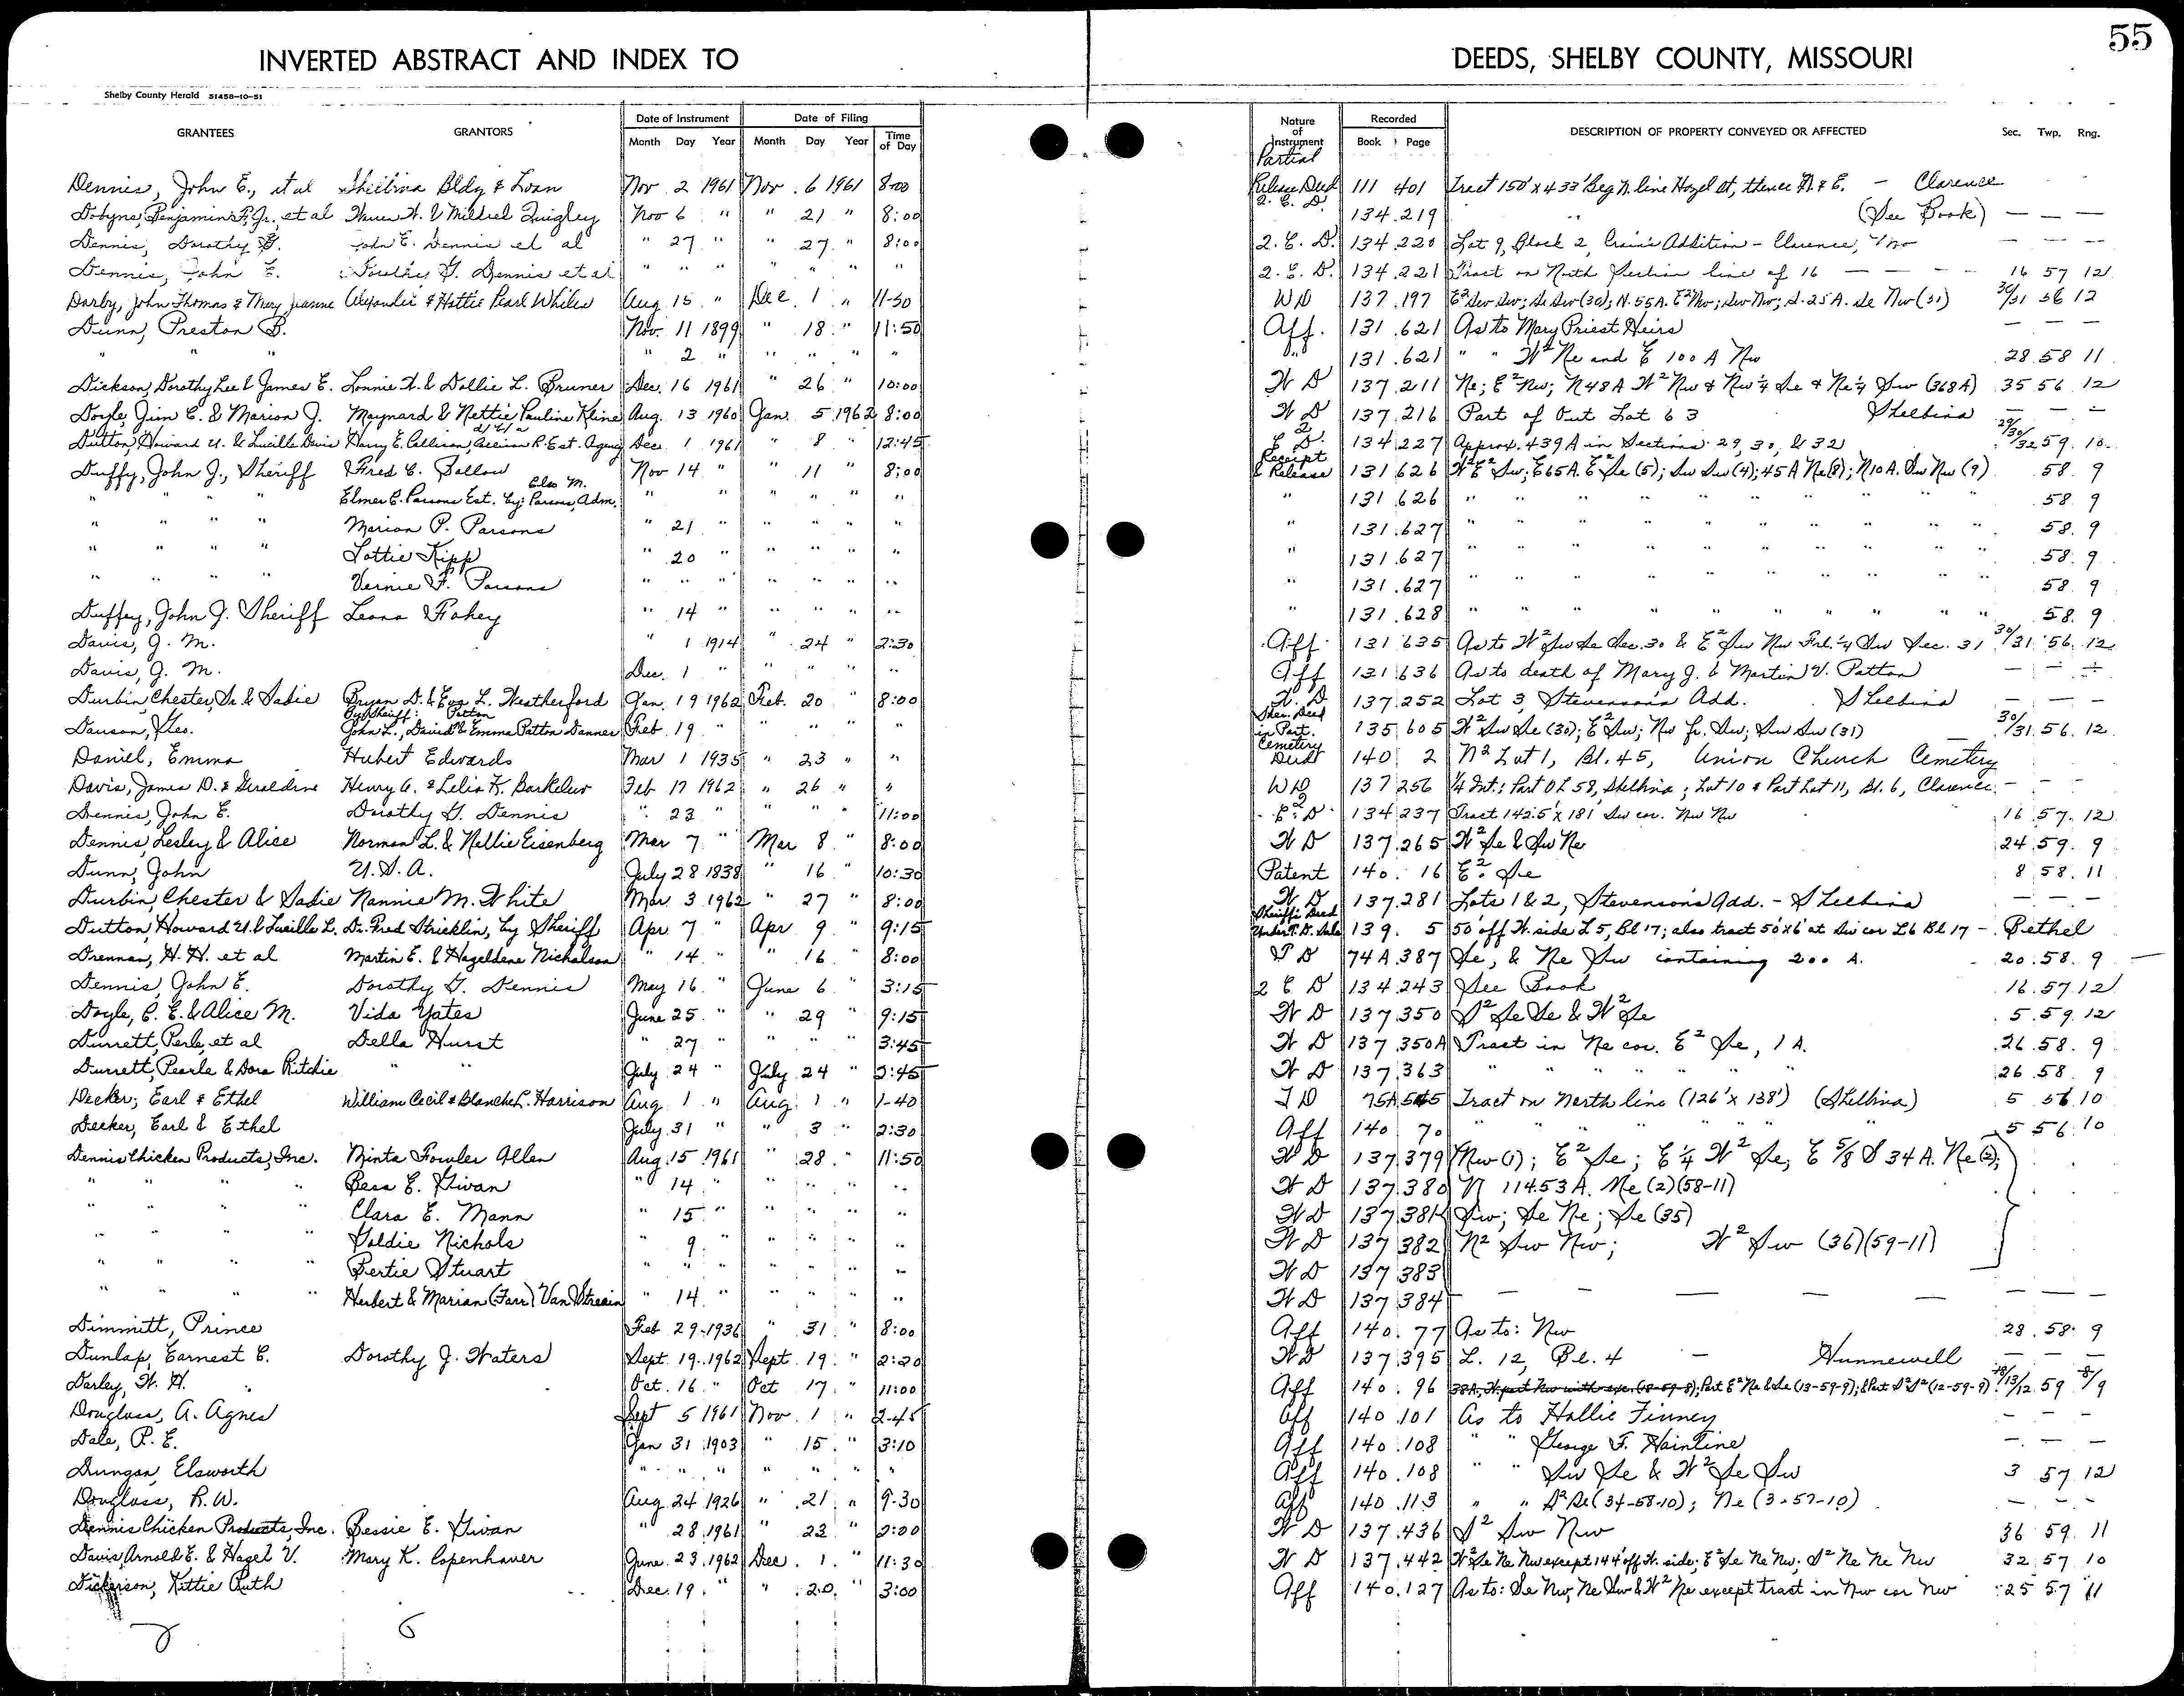 55
INVERTED ABSTRACT AND INDEX TO DEEDS, SHELBY COUNTY, MISSOURI
Shelby County Herald 51458-10-51
GRANTEES GRANTORS Date of Instrument Date of Filing Nature of Instrument Recorded DESCRIPTION OF PROPERTY CONVEYED OR AFFECTED Sec. Twp. Rng.
Month Day Year Month Day Year Time of Day Book Page
Partial
Dennis, John E., et al Shelbina Bldg & Loan Nov 2 1961 Nov. 6 1961 8:00 Release Deed 111 401 Tract 150' x 433' Beg N. line Hazel St, thence N. & E. - Clarence
Dobyns, Benjamin F. Jr., et al & Mildred Quigley Nov 6 " " 21 " 8:00 Q. C. D. 134 219 (See Book) — — —
Dennis, Dorothy G. John E. Dennis et al " 27 " " 27 " 8:00 Q. C. D. 134 220 Lot 9, Block 2, Crain's Addition - Clarence, Mo — — —
Dennis, John E. Dorothy G. Dennis et al " " " " " " " Q. C. D. 134 221 Tract on North Section line of 16 — — — 16 57 12
Darby, John Thomas & Mary Jeanne Alexander & Hattie Pearl Whiles Aug 15 " Dec. 1 " 11-30 W D 137 197 E² Sw Sw; Se Sw (30); N. 55 A. E² Nw; Sw Nw; S. 25 A. Se Nw (31) 30/31 56 12
Dunn, Preston B. Nov. 11 1899 " 18 " 11:50 Aff. 131 621 As to Mary Priest Heirs — — —
" " " " 2 " " " " " " 131 621 " " W² Ne and E 100 A Nw 28 58 11
Dickson, Dorothy Lee & James E. Lonnie W. & Dollie L. Bruner Dec. 16 1961 " 26 " 10:00 W D 137 211 Ne; E² Nw; N 48 A W² Nw & Nw ¼ Se & Ne ¼ Sw (368 A) 35 56 12
Doyle, Jim C. & Marion J. Maynard & Nettie Pauline Kline Aug. 13 1960 Jan. 5 1962 8:00 W D 137 216 Part of Out Lot 63 Shelbina — — —
Dutton, Howard U. & Lucille Davis Harry E. Allison, d/b/a Allison R. Est. Agency Dec. 1 1961 " 8 " 12:45 E² D. 134 227 Approx. 439 A in Sections 29, 30, & 32 29/30/32 59 10
Duffy, John J., Sheriff Fred C. Bollow Nov 14 " " 11 " 8:00 Receipt & Release 131 626 W² E² Sw; E 65 A. E² Se (5); Sw Sw (4); 45 A Ne (8); N 10 A. Sw Nw (9) 58 9
" " " " Elmer C. Parsons Est. by: Elso M. Parsons, Adm. " " " " " " " 131 626 " " " " " " " 58 9
" " " " Marion P. Parsons " 21 " " " " " " 131 627 " " " " " " " 58 9
" " " " Lottie Kipp " 20 " " " " " " 131 627 " " " " " " " 58 9
" " " " Vernie F. Parsons " " " " " " " " 131 627 " " " " " " " 58 9
Duffey, John J. Sheriff Leona Fahey " 14 " " " " " " 131 628 " " " " " " " 58 9
Davis, J. M. " 1 1914 " 24 " 2:30 Aff 131 635 As to W² Sw Se Sec. 30 & E² Sw Nw Frl. ¼ Sw Sec. 31 30/31 56 12
Davis, J. M. Dec. 1 " " " " " Aff 131 636 As to death of Mary J. & Martin V. Patton — — —
Durbin, Chester, Sr. & Sadie Bryan D. & Eva L. Weatherford Jan. 19 1962 Feb. 20 " 8:00 W. D 137 252 Lot 3, Stevensons Add. Shelbina — — —
Danson, Geo. By Sheriff: John L., David & Emma Patton Danner Feb 19 " " " " " Sher. Deed in Part. 135 605 W² Sw Se (30); E² Sw; Nw fr. Sw; Sw Sw (31) 30/31 56 12
Daniel, Emma Hubert Edwards Mar 1 1935 " 23 " " Cemetery Deed 140 2 N² Lot 1, Bl. 45, Union Church Cemetery
Davis, James D. & Geraldine Henry A. & Lelia K. Barkelew Feb 17 1962 " 26 " " W D 137 256 ¼ Int.: Part O L 58, Shelbina; Lot 10 & Part Lot 11, Bl. 6, Clarence - - -
Dennis, John E. Dorothy G. Dennis " 23 " " " " 11:00 E² D 134 237 Tract 142.5' x 181 Sw cor. Nw Nw 16 57 12
Dennis, Lesley & Alice Norman L. & Nellie Eisenberg Mar 7 " Mar 8 " 8:00 W D 137 265 W² Se & Sw Ne 24 59 9
Dunn, John U.S.A. July 28 1838 " 16 " 10:30 Patent 140 16 E² Se 8 58 11
Durbin, Chester & Sadie Nannie M. White Mar. 3 1962 " 27 " 8:00 W D 137 281 Lots 1 & 2, Stevensons Add. - Shelbina — — —
Dutton, Howard U. & Lucille L. Dr. Fred Stricklin, by Sheriff Apr 7 " Apr 9 " 9:15 Sheriff's Deed Under T. D. Sale 139 5 50' off W. side L 5, Bl 17; also tract 50'x6' at Sw cor L6 Bl 17 - Bethel
Drennan, H. H. et al Martin E. & Hazeldene Nicholson " 14 " " 16 " 8:00 T D 74A 387 Se, & Ne Sw containing 200 A. 20 58 9
Dennis, John E. Dorothy G. Dennis May 16 " June 6 " 3:15 Q C D 134 243 See Book 16 57 12
Doyle, C. E. & Alice M. Vida Yates June 25 " " 29 " 9:15 W D 137 350 S² Se Se & W² Se 5 59 12
Durrett, Perle, et al Della Hurst " 27 " " " " 3:45 W D 137 350A Tract in Ne cor. E² Se, 1 A. 26 58 9
Durrett, Pearle & Dora Ritchie " " July 24 " July 24 " 2:45 W D 137 363 " " " " " " 26 58 9
Decker, Earl & Ethel William Cecil & Blanche L. Harrison Aug 1 " Aug. 1 " 1-40 T D 75A 545 Tract on North line (126' x 138') (Shelbina) 5 56 10
Decker, Earl & Ethel July 31 " " 3 " 2:30 Aff 140 70 " " " " " " 5 56 10
Dennis Chicken Products, Inc. Minta Fowler Allen Aug. 15 1961 " 28 " 11:50 W D 137 379 Nw (1); E² Se; E ¼ W² Se; E 5/8 S 34 A. Ne (2);
" " " " Bess E. Givan " 14 " " " " " W D 137 380 N 114.53 A. Ne (2) (58-11)
" " " " Clara E. Mann " 15 " " " " " W D 137 381 Sw; Se Ne; Se (35)
" " " " Goldie Nichols " 9 " " " " " W D 137 382 N² Sw Nw; W² Sw (36) (59-11)
" " " " Bertie Stuart " " " " " " " W D 137 383
" " " " Herbert & Marian (Farr) Van Streain " 14 " " " " " W D 137 384 — — — — — — — —
Dimmitt, Prince Feb 29 1936 " 31 " 8:00 Aff 140 77 As to: Nw 28 58 9
Dunlap, Earnest C. Dorothy J. Waters Sept. 19 1962 Sept. 19 " 2:20 W D 137 395 L. 12, Bl. 4 - Hunnewell — — —
Darley, W. H. Oct. 16 " Oct 17 " 11:00 Aff 140 96 38A, W. part Nw with exc. (18-59-8); Part E² Ne & Se (13-59-9); & Part S² S² (12-59-9) 18/13/12 59 8/9
Douglass, A. Agnes Sept 5 1961 Nov. 1 " 2-45 Aff 140 101 As to Hallie Finney — — —
Dale, P. E. Jan 31 1903 " 15 " 3:10 Aff 140 108 " " George F. Hainline — — —
Dungan, Elsworth " " " " " " " Aff 140 108 " " Sw Se & W² Se Sw 3 57 12
Douglass, R. W. Aug 24 1926 " 21 " 9-30 Aff 140 113 " " S² Se (34-58-10); Ne (3-57-10) — — —
Dennis Chicken Products, Inc. Bessie E. Givan " 28 1961 " 23 " 2:00 W D 137 436 S² Sw Nw 36 59 11
Davis, Arnold E. & Hazel V. Mary K. Copenhaver June 23 1962 Dec. 1 " 11:30 W D 137 442 W² Se Ne Nw except 144' off W. side; E² Se Ne Nw; S² Ne Ne Nw 32 57 10
Dickerson, Kittie Ruth Dec. 19 " " 20 " 3:00 Aff 140 127 As to: Se Nw, Ne Sw & W² Ne except tract in Nw cor Nw 25 57 11
6